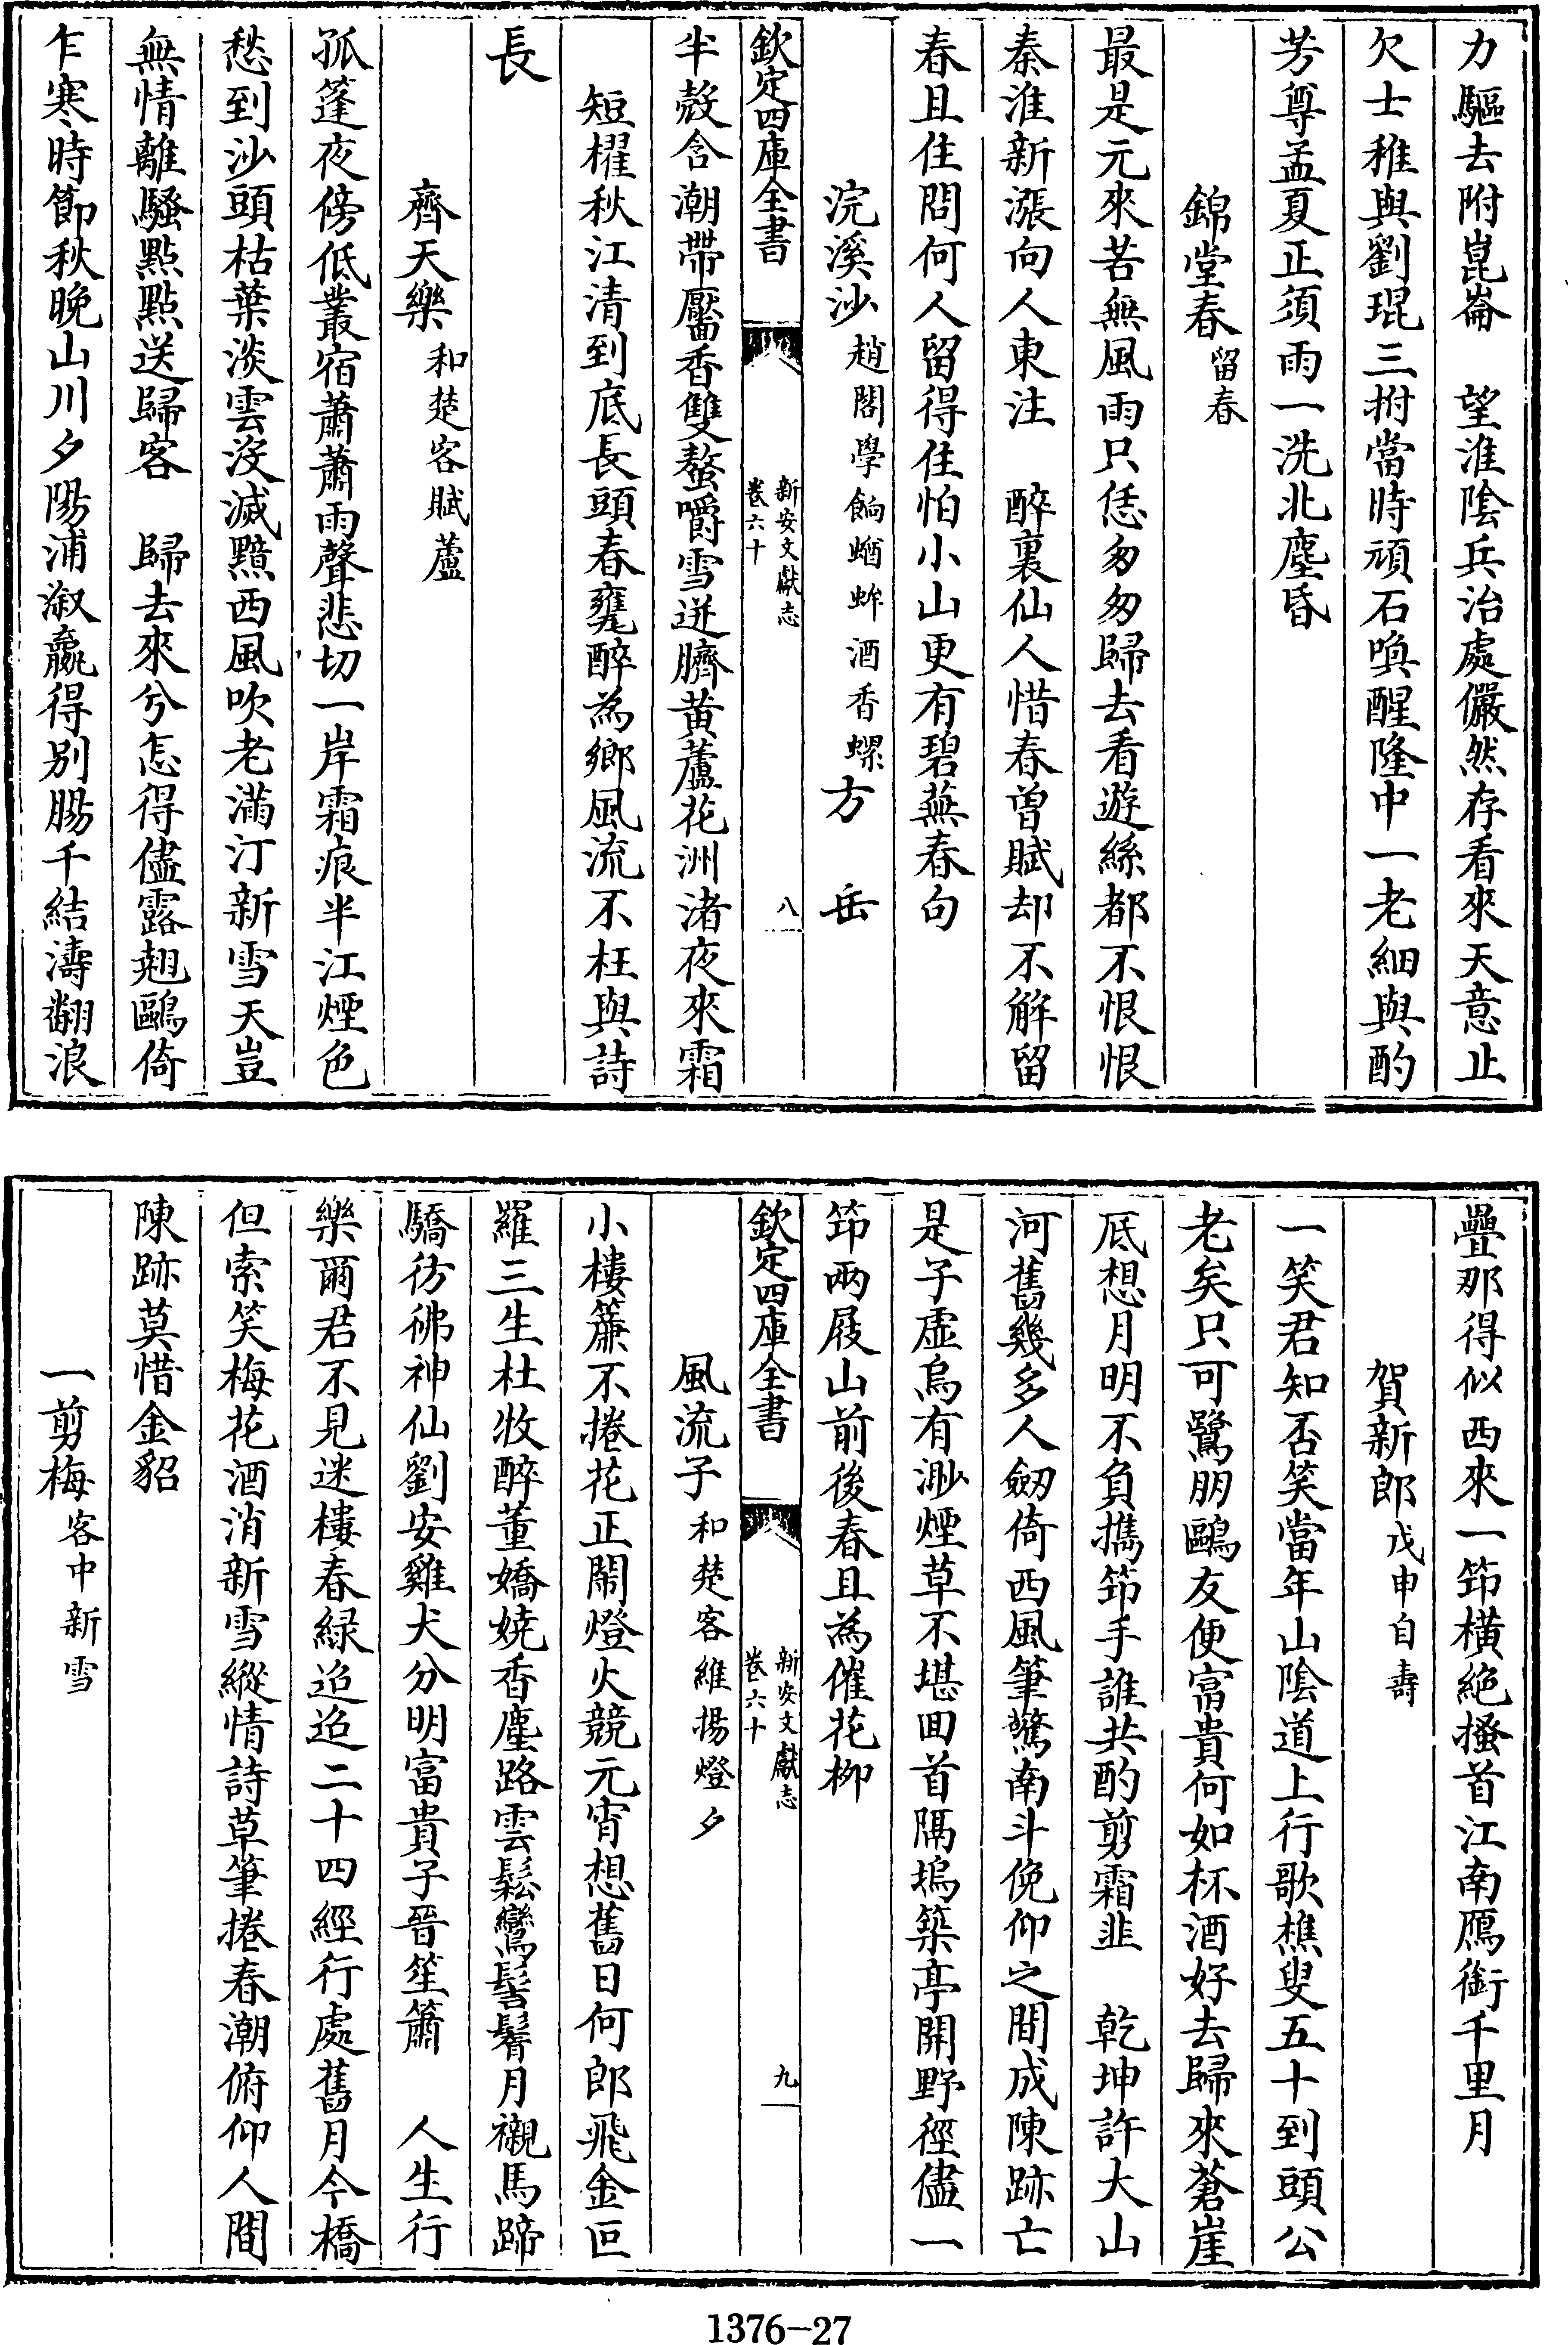 力驅去附崑崙　望淮陰兵治處儼然存看來天意止
欠士稚與劉琨三拊當時頑石喚醒隆中一老細與酌
芳尊孟夏正須雨一洗北塵昏
錦堂春留春
最是元來苦無風雨只恁匆匆歸去看遊絲都不恨恨
秦淮新漲向人東注　醉裏仙人惜春曾賦却不解留
春且住問何人留得住怕小山更有碧蕪春句
浣溪沙趙閣學餉蝤蛑酒香螺方　岳
欽定四庫全書　新安文獻志　卷六十　八
半殼含潮帶靨香雙螯嚼雪迸臍黃蘆花洲渚夜來霜
短櫂秋江清到底長頭春甕醉為鄉風流不枉與詩
長
齊天樂和楚客賦蘆
孤篷夜傍低叢宿蕭蕭雨聲悲切一岸霜痕半江煙色
愁到沙頭枯葉淡雲沒滅黯西風吹老滿汀新雪天豈
無情離騷點點送歸客　歸去來兮怎得儘露翹鷗倚
乍寒時節秋晚山川夕陽浦溆贏得别腸千結濤翻浪
疊那得似西來一笻橫絶搔首江南鴈銜千里月
賀新郎戊申自壽
一笑君知否笑當年山陰道上行歌樵叟五十到頭公
老矣只可鷺朋鷗友便富貴何如杯酒好去歸來蒼崖
底想月明不負攜笻手誰共酌剪霜韭　乾坤許大山
河舊幾多人劒倚西風筆驚南斗俛仰之間成陳跡亡
是子虛烏有渺煙草不堪回首隔塢築亭開野徑儘一
笻兩屐山前後春且為催花柳
欽定四庫全書　新安文獻志　卷六十　九
風流子和楚客維揚燈夕
小樓簾不捲花正鬧燈火競元宵想舊日何郎飛金叵
羅三生杜牧醉董嬌嬈香塵路雲鬆鸞髻鬌月襯馬蹄
驕彷彿神仙劉安雞犬分明富貴子晉笙簫　人生行
樂爾君不見迷樓春緑迢迢二十四經行處舊月今橋
但索笑梅花酒消新雪縱情詩草筆捲春潮俯仰人間
陳跡莫惜金貂
一剪梅客中新雪
1376-27